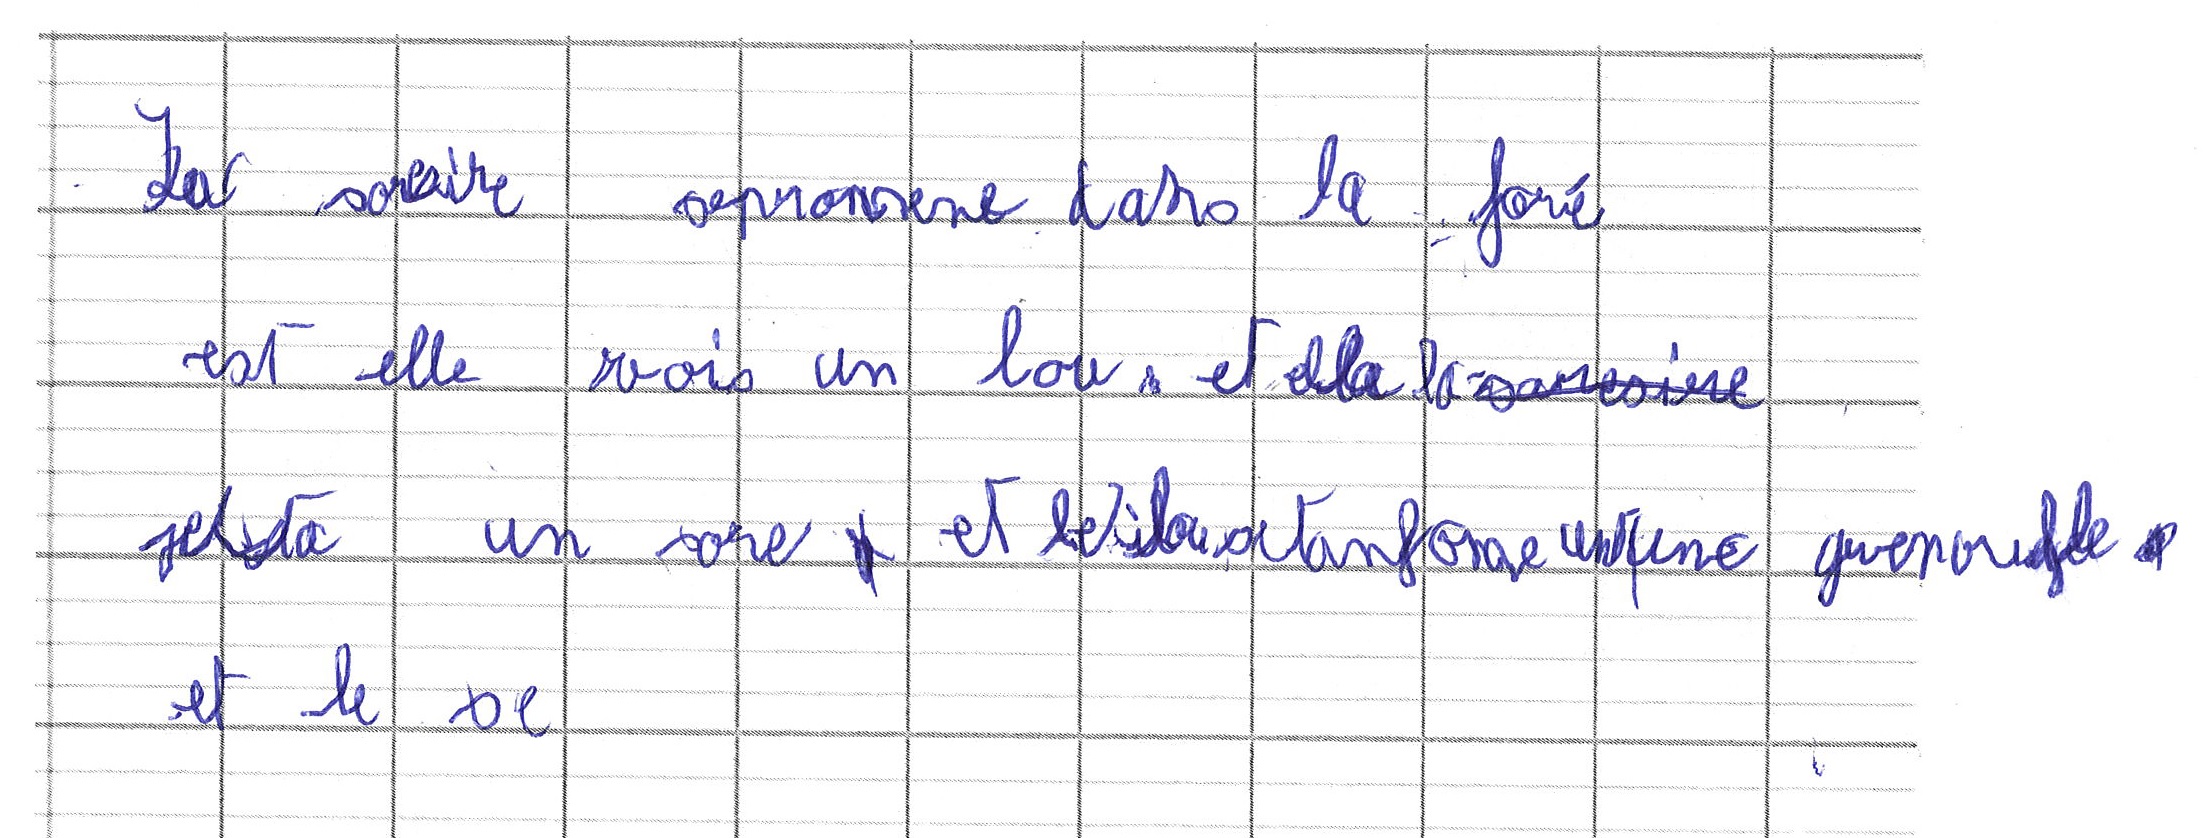 La sorcire sepromene dans la foré
est elle vois un lou. et ella la
jeta un sore et le lou setanforme une guenouille.
et le se